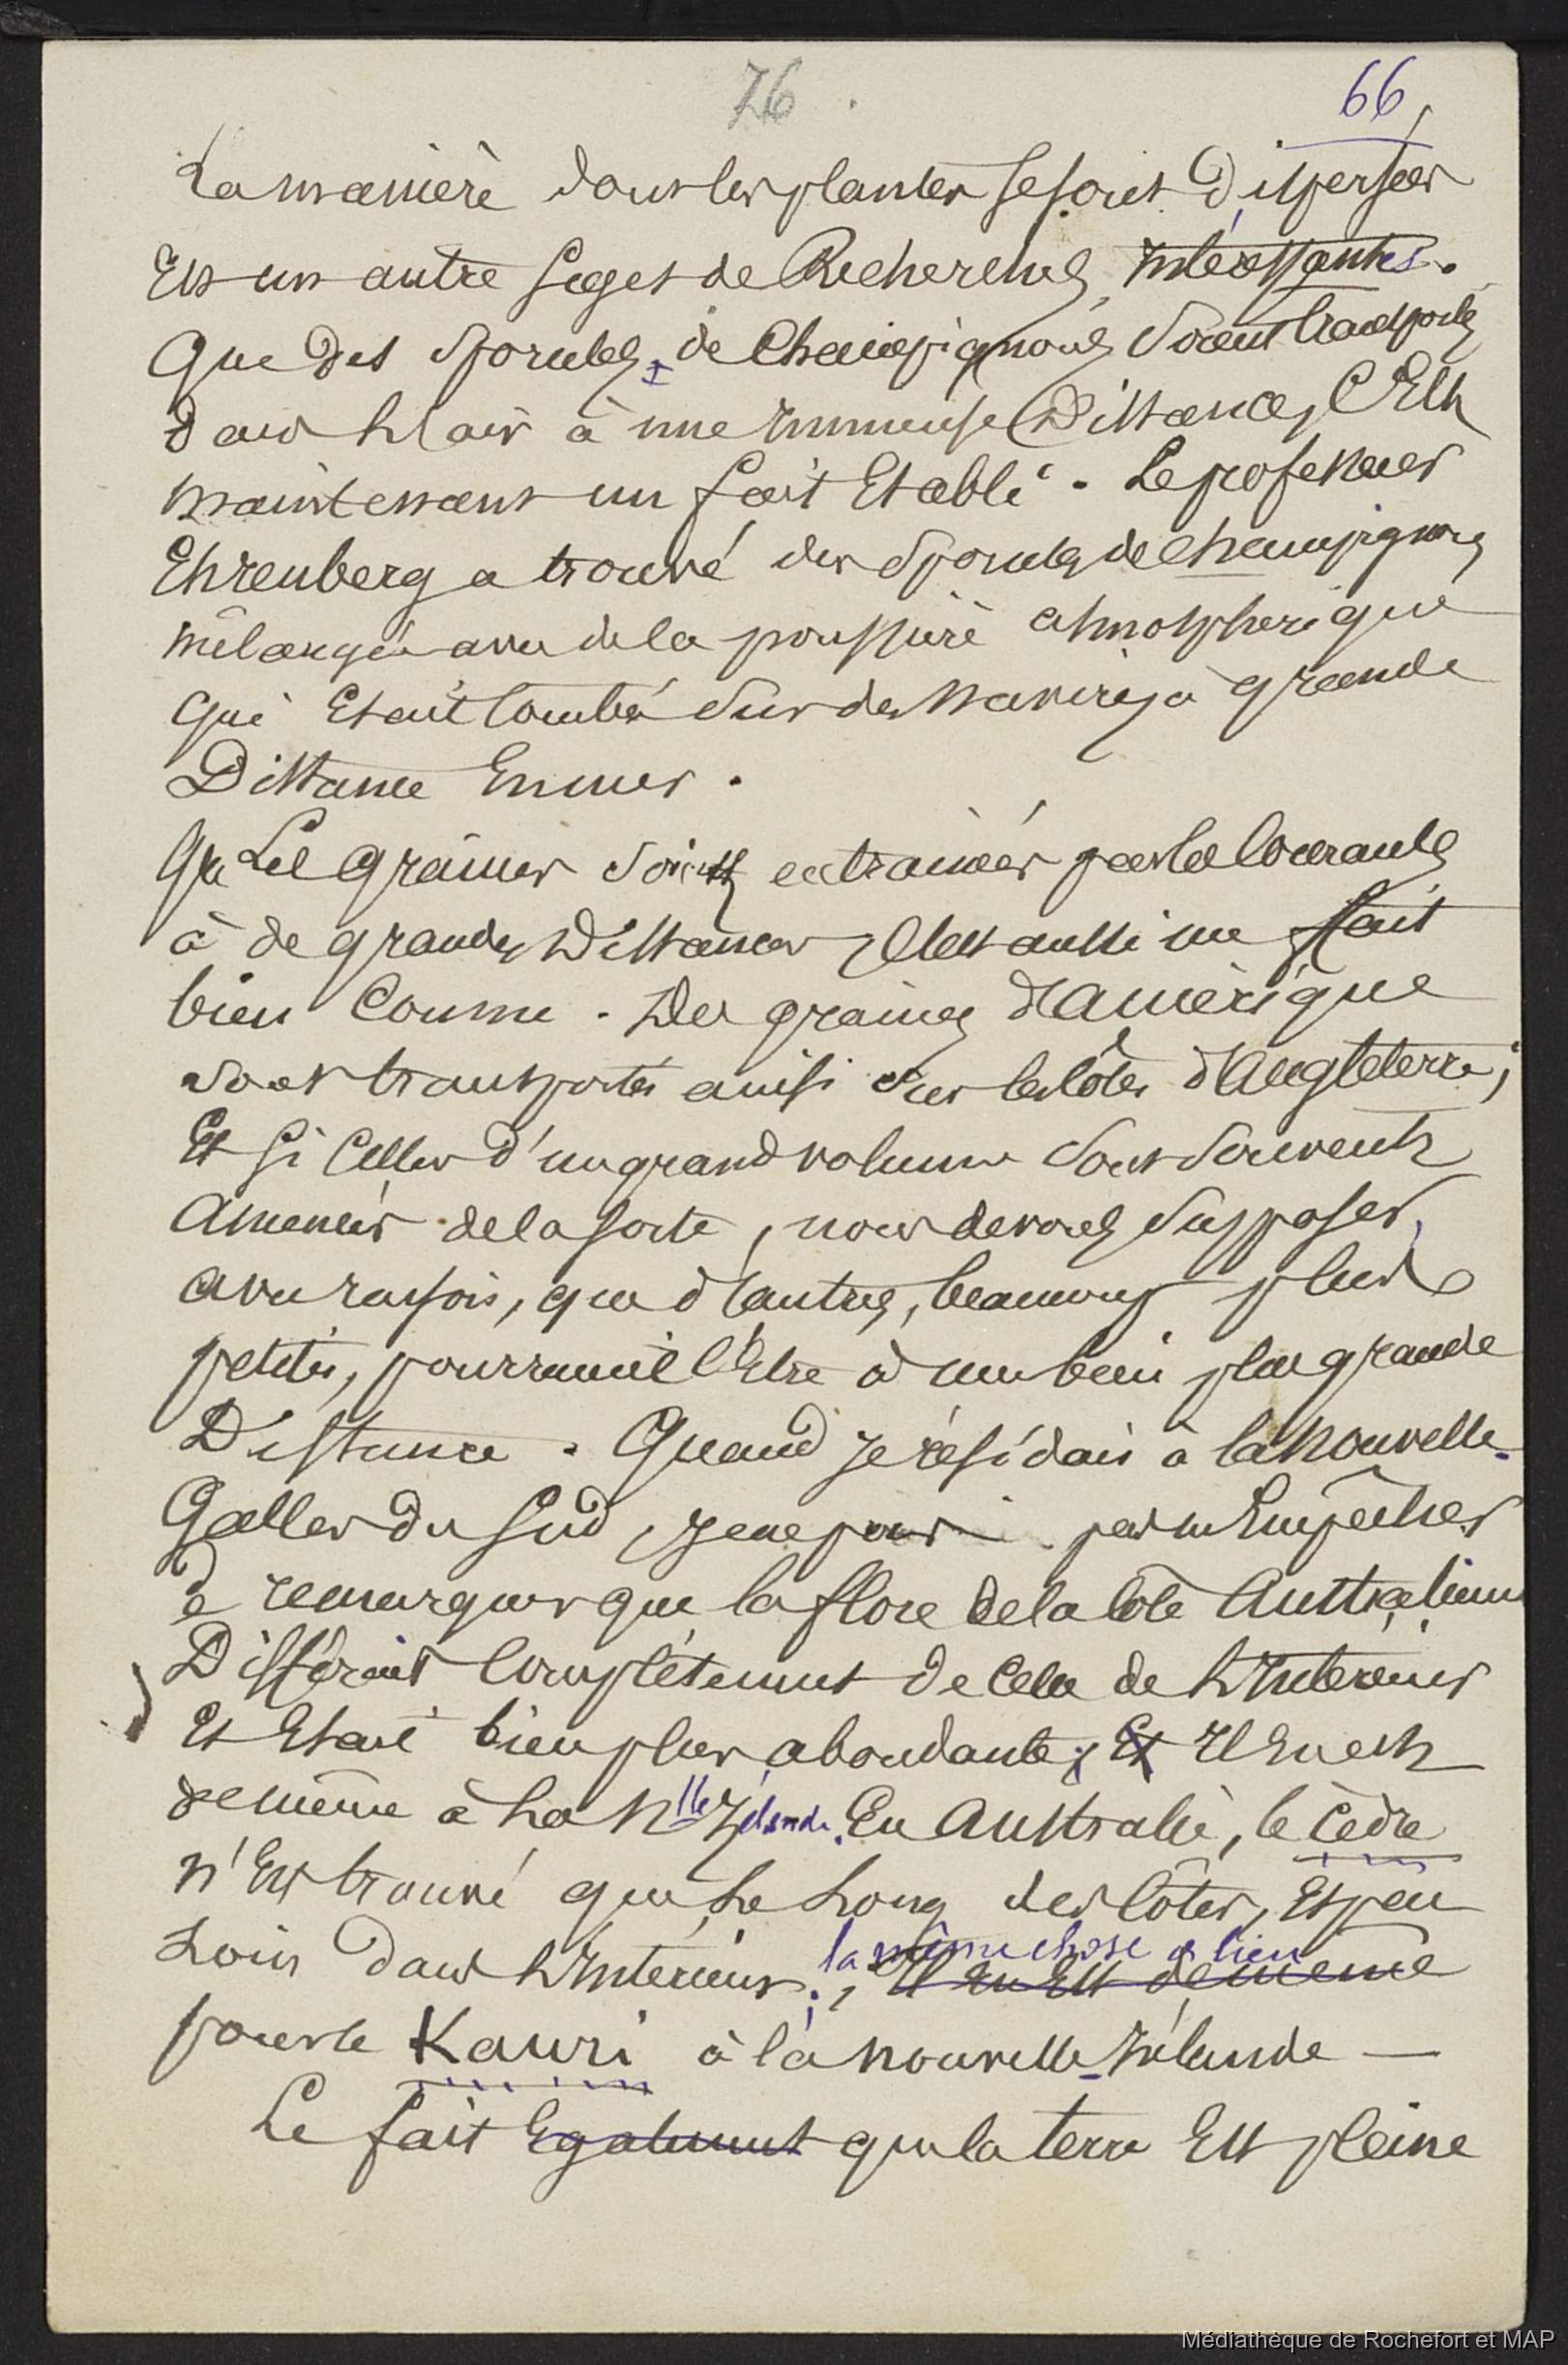 76
66
La manière dont les plantes se sont Dispersées
Est un autre sujet de Recherches Intéressantes.
Que des Sporules de Champignons soient transportés
dans L'air à une Immense Distance, C'Est
maintenant un fait Etabli. Le professeur
Ehrenberg a trouvé des Sporules de champignons
mélangés avec de la poussière atmospherique
qui Etait tombé sur des navires, à grande
Distance En mer.
Que Les graines soient entrainées par les Courants
à de grandes Distances, C'est aussi un fait
bien Connu. Des graines d'Amérique
sont transportées ainsi sur les Côtes d'Angleterre;
Et si Celles d'un grand volume sont souvent
Amenées de la sorte, nous devons supposer,
avec raison, que d'autres, beaucoup plus
petites, pourraient l'Etre à une bien plus grande
Distance. Quand je résidais à la Nouvelle-
Galles du Sud, je ne pus m'Empêcher
de remarquer que la flore de la Côte Australienne
Différait Complétement de Celle de L'Interieur
Et Etait bien plus abondante; Et Il En est
de même à La Nlle Zélande. En Australie, le Cèdre
n'Est trouvé que Le Long des Côtes, Et peu
Loin dans L'Interieur; la même chose a lieu Il En Est de même
pour le Kauri à la Nouvelle-Zélande —
Le fait Egalement que la terre Est pleine
Médiathèque de Rochefort et MAP